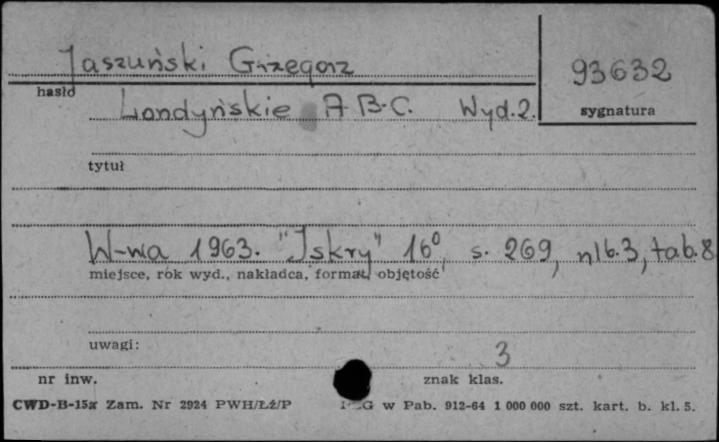 Jaszuński Grzegorz
93632
hasło
sygnatura
Londyńskie A.B.C. Wyd.2.
tytuł
W-wa 1963. "Iskry" 16°, s. 269, nlb.3, tab.8
miejsce, rok wyd., nakładca, format, objętość
uwagi:
3
nr inw. znak klas.
CWD-B-15a Zam. Nr 2924 PWH/Łź/P G w Pab. 912-64 1 000 000 szt. kart. b. kl. 5.